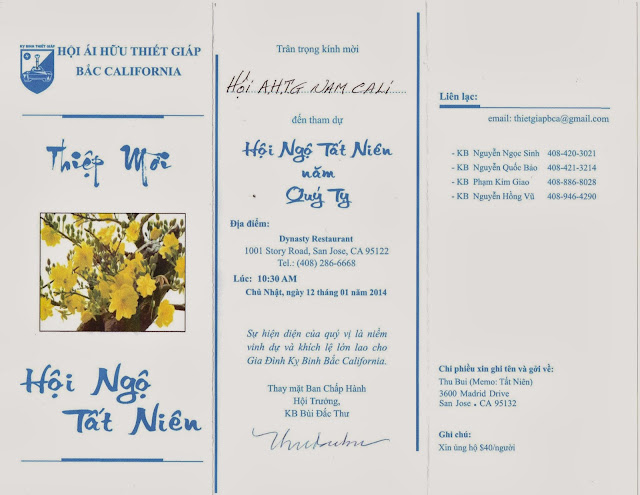 KỴ BINH THIẾT GIÁP
HỘI ÁI HỮU THIẾT GIÁP
BẮC CALIFORNIA
Thiệp Mời
Hội Ngộ
Tất Niên
Trân trọng kính mời
Hội A.H.T.G NAM CALI
đến tham dự
Hội Ngộ Tất Niên
năm
Quý Tỵ
Địa điểm:
Dynasty Restaurant
1001 Story Road, San Jose, CA 95122
Tel.: (408) 286-6668
Lúc: 10:30 AM
Chủ Nhật, ngày 12 tháng 01 năm 2014
Sự hiện diện của quý vị là niềm
vinh dự và khích lệ lớn lao cho
Gia Đình Kỵ Binh Bắc California.
Thay mặt Ban Chấp Hành
Hội Trưởng,
KB Bùi Đắc Thư
Liên lạc:
email: thietgiapbca@gmail.com
- KB Nguyễn Ngọc Sinh 408-420-3021
- KB Nguyễn Quốc Bảo 408-421-3214
- KB Phạm Kim Giao 408-886-8028
- KB Nguyễn Hồng Vũ 408-946-4290
Chi phiếu xin ghi tên và gởi về:
Thu Bui (Memo: Tất Niên)
3600 Madrid Drive
San Jose . CA 95132
Ghi chú:
Xin ủng hộ $40/người